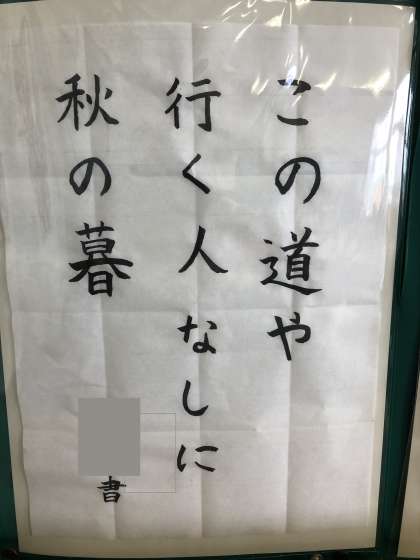 この道や
行く人なしに
秋の暮
書